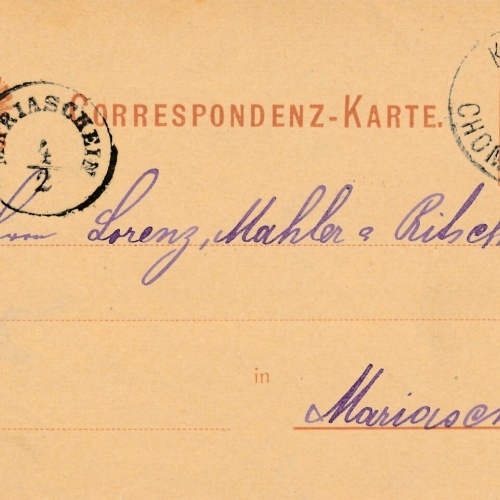 CORRESPONDENZ-KARTE.
MARIASCHEIN
4
2
K
CHOM
Lorenz, Mahler & Ritsch
in
Mariasch